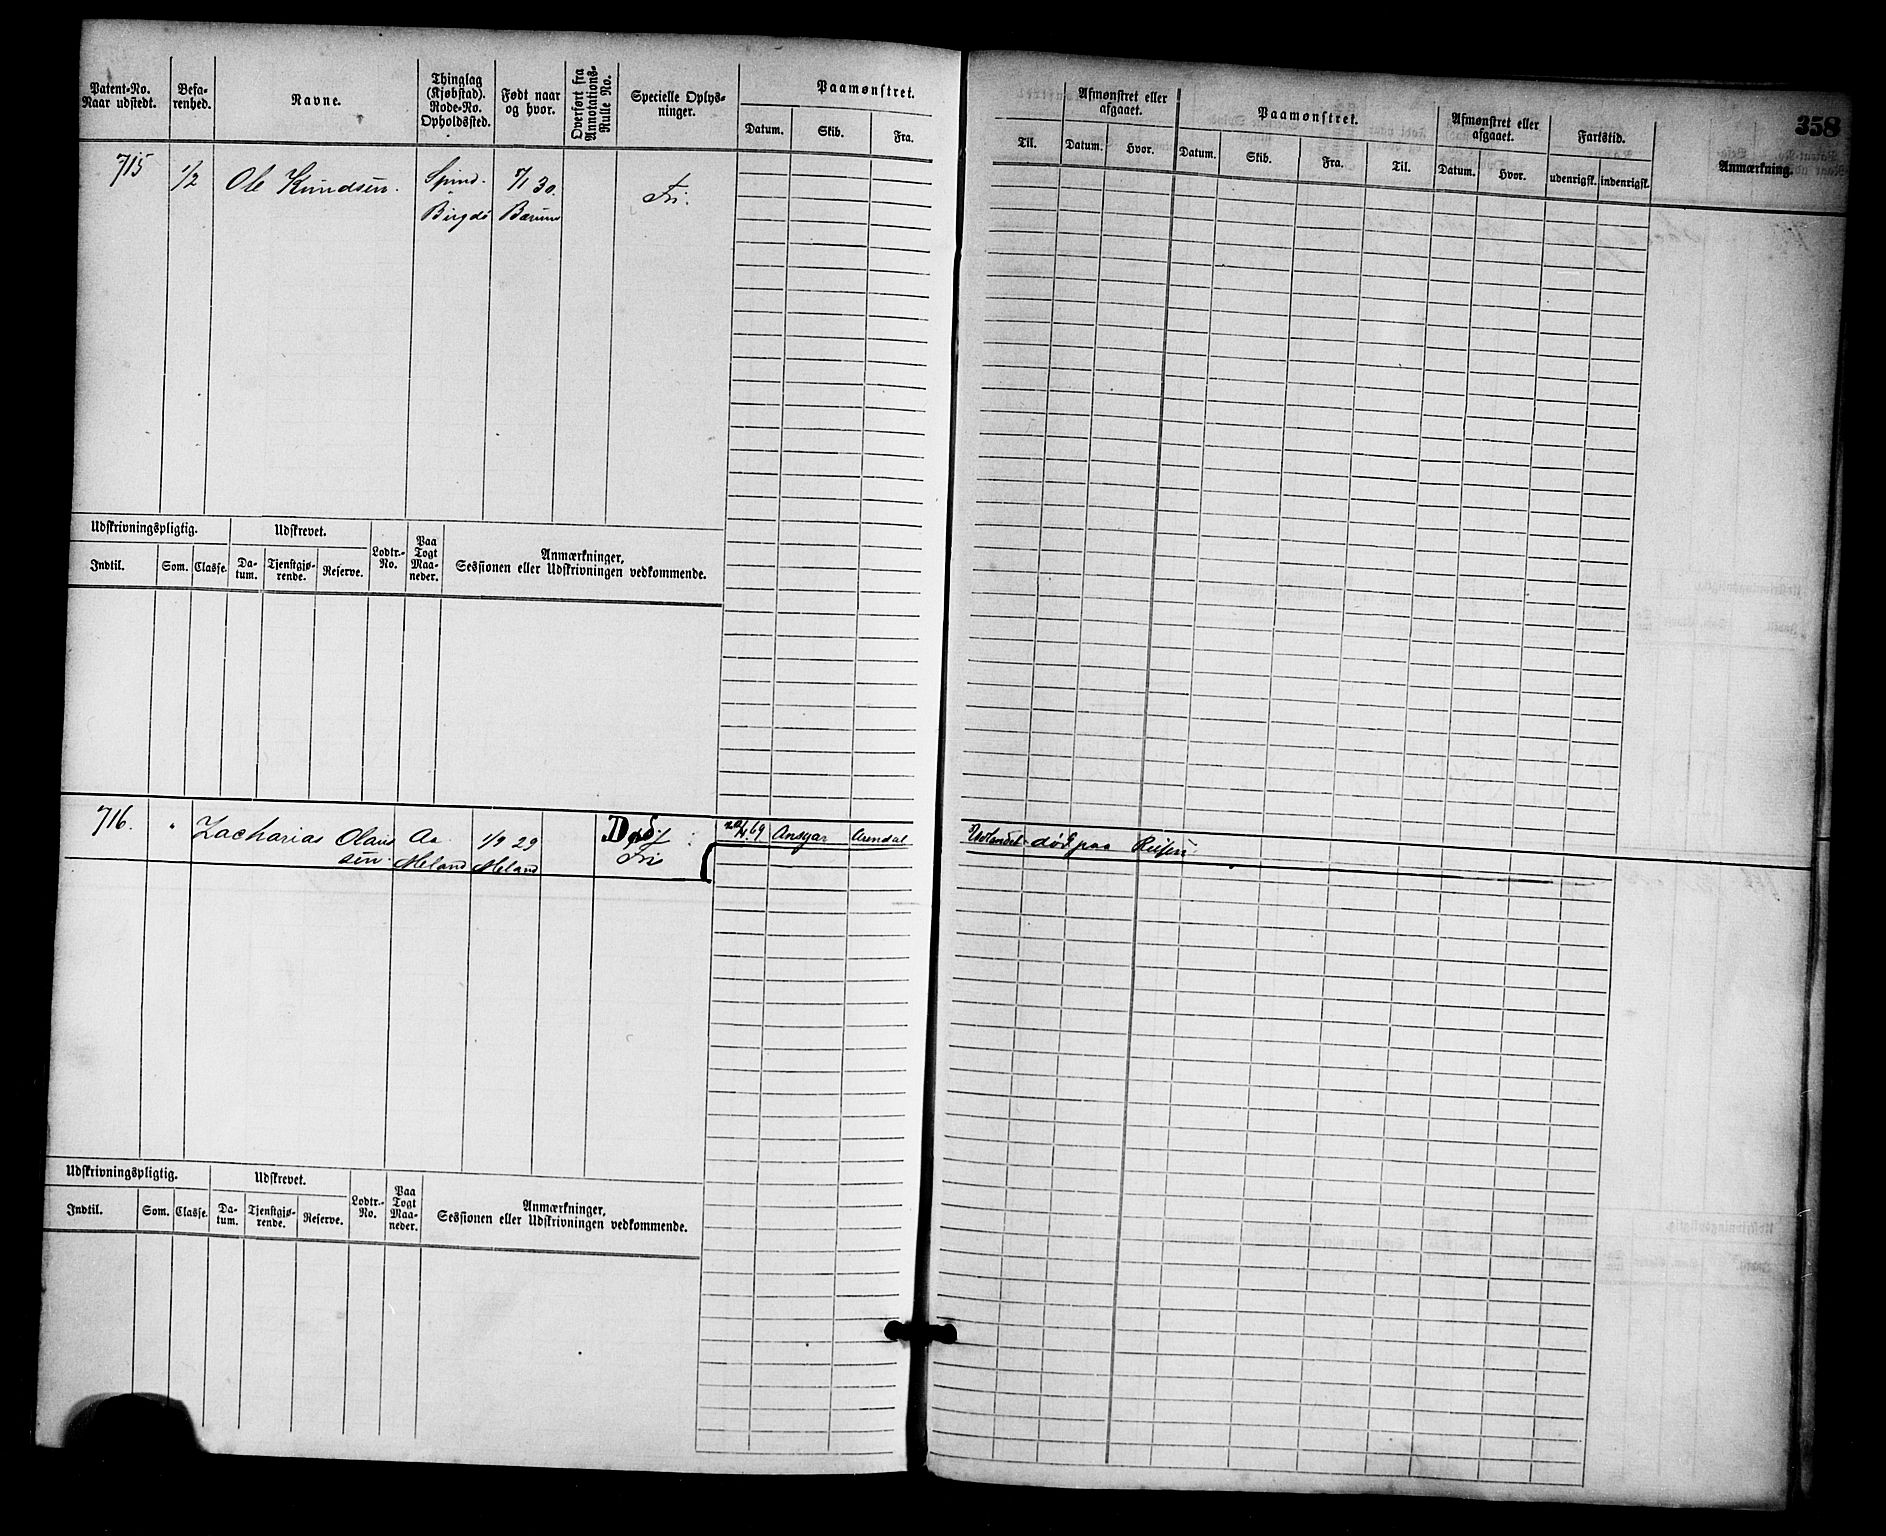 358
Patent-No. Naar udstedt.
Befarenhed.
Navne.
Thinglag (Kjøbstad). Rode-No. Opholdssted.
Født naar og hvor.
Overført fra Annotations-Rulle No.
Specielle Oplysninger.
Paamønstret.
Datum.
Skib.
Fra.
Til.
Afmønstret eller afgaaet.
Datum.
Hvor.
Paamønstret.
Datum.
Skib.
Fra.
Til.
Afmønstret eller afgaaet.
Datum.
Hvor.
Fartstid.
udenrigsk.
indenrigsk.
Anmærkning.
715 1/2 Ole Knudsen. Spind. 7/1 30. Fri.
Birgdø Barum
Udskrivningspligtig.
Udskrevet.
Lodtr.-No.
Paa Togt Maaneder.
Anmærkninger,
Sessionen eller Udskrivningen vedkommende.
Indtil.
Som.
Classe.
Datum.
Tjenstgjørende.
Reserve.
716. " Zacharias Olaus Aa 1/9 29 Død. 69 Ansgar Arendal Udlandet død paa Reisen
sen. Meland Meland Fri
Udskrivningspligtig.
Udskrevet.
Lodtr.-No.
Paa Togt Maaneder.
Anmærkninger,
Sessionen eller Udskrivningen vedkommende.
Indtil.
Som.
Classe.
Datum.
Tjenstgjørende.
Reserve.